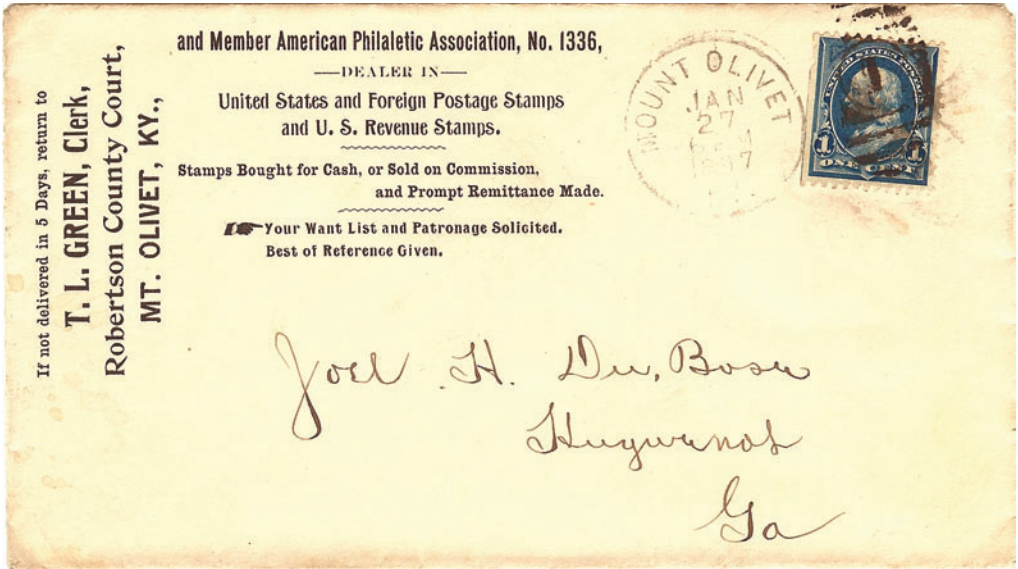 If not delivered in 5 Days, return to
T. L. GREEN, Clerk,
Robertson County Court,
MT. OLIVET, KY.,
and Member American Philaletic Association, No. 1336,
DEALER IN
United States and Foreign Postage Stamps
and U. S. Revenue Stamps.
Stamps Bought for Cash, or Sold on Commission,
and Prompt Remittance Made.
Your Want List and Patronage Solicited.
Best of Reference Given.
MOUNT OLIVET
JAN
27
UNITED STATES POSTAGE
1 1
ONE CENT
Joel H. Du, Bose
Huguenot
Ga